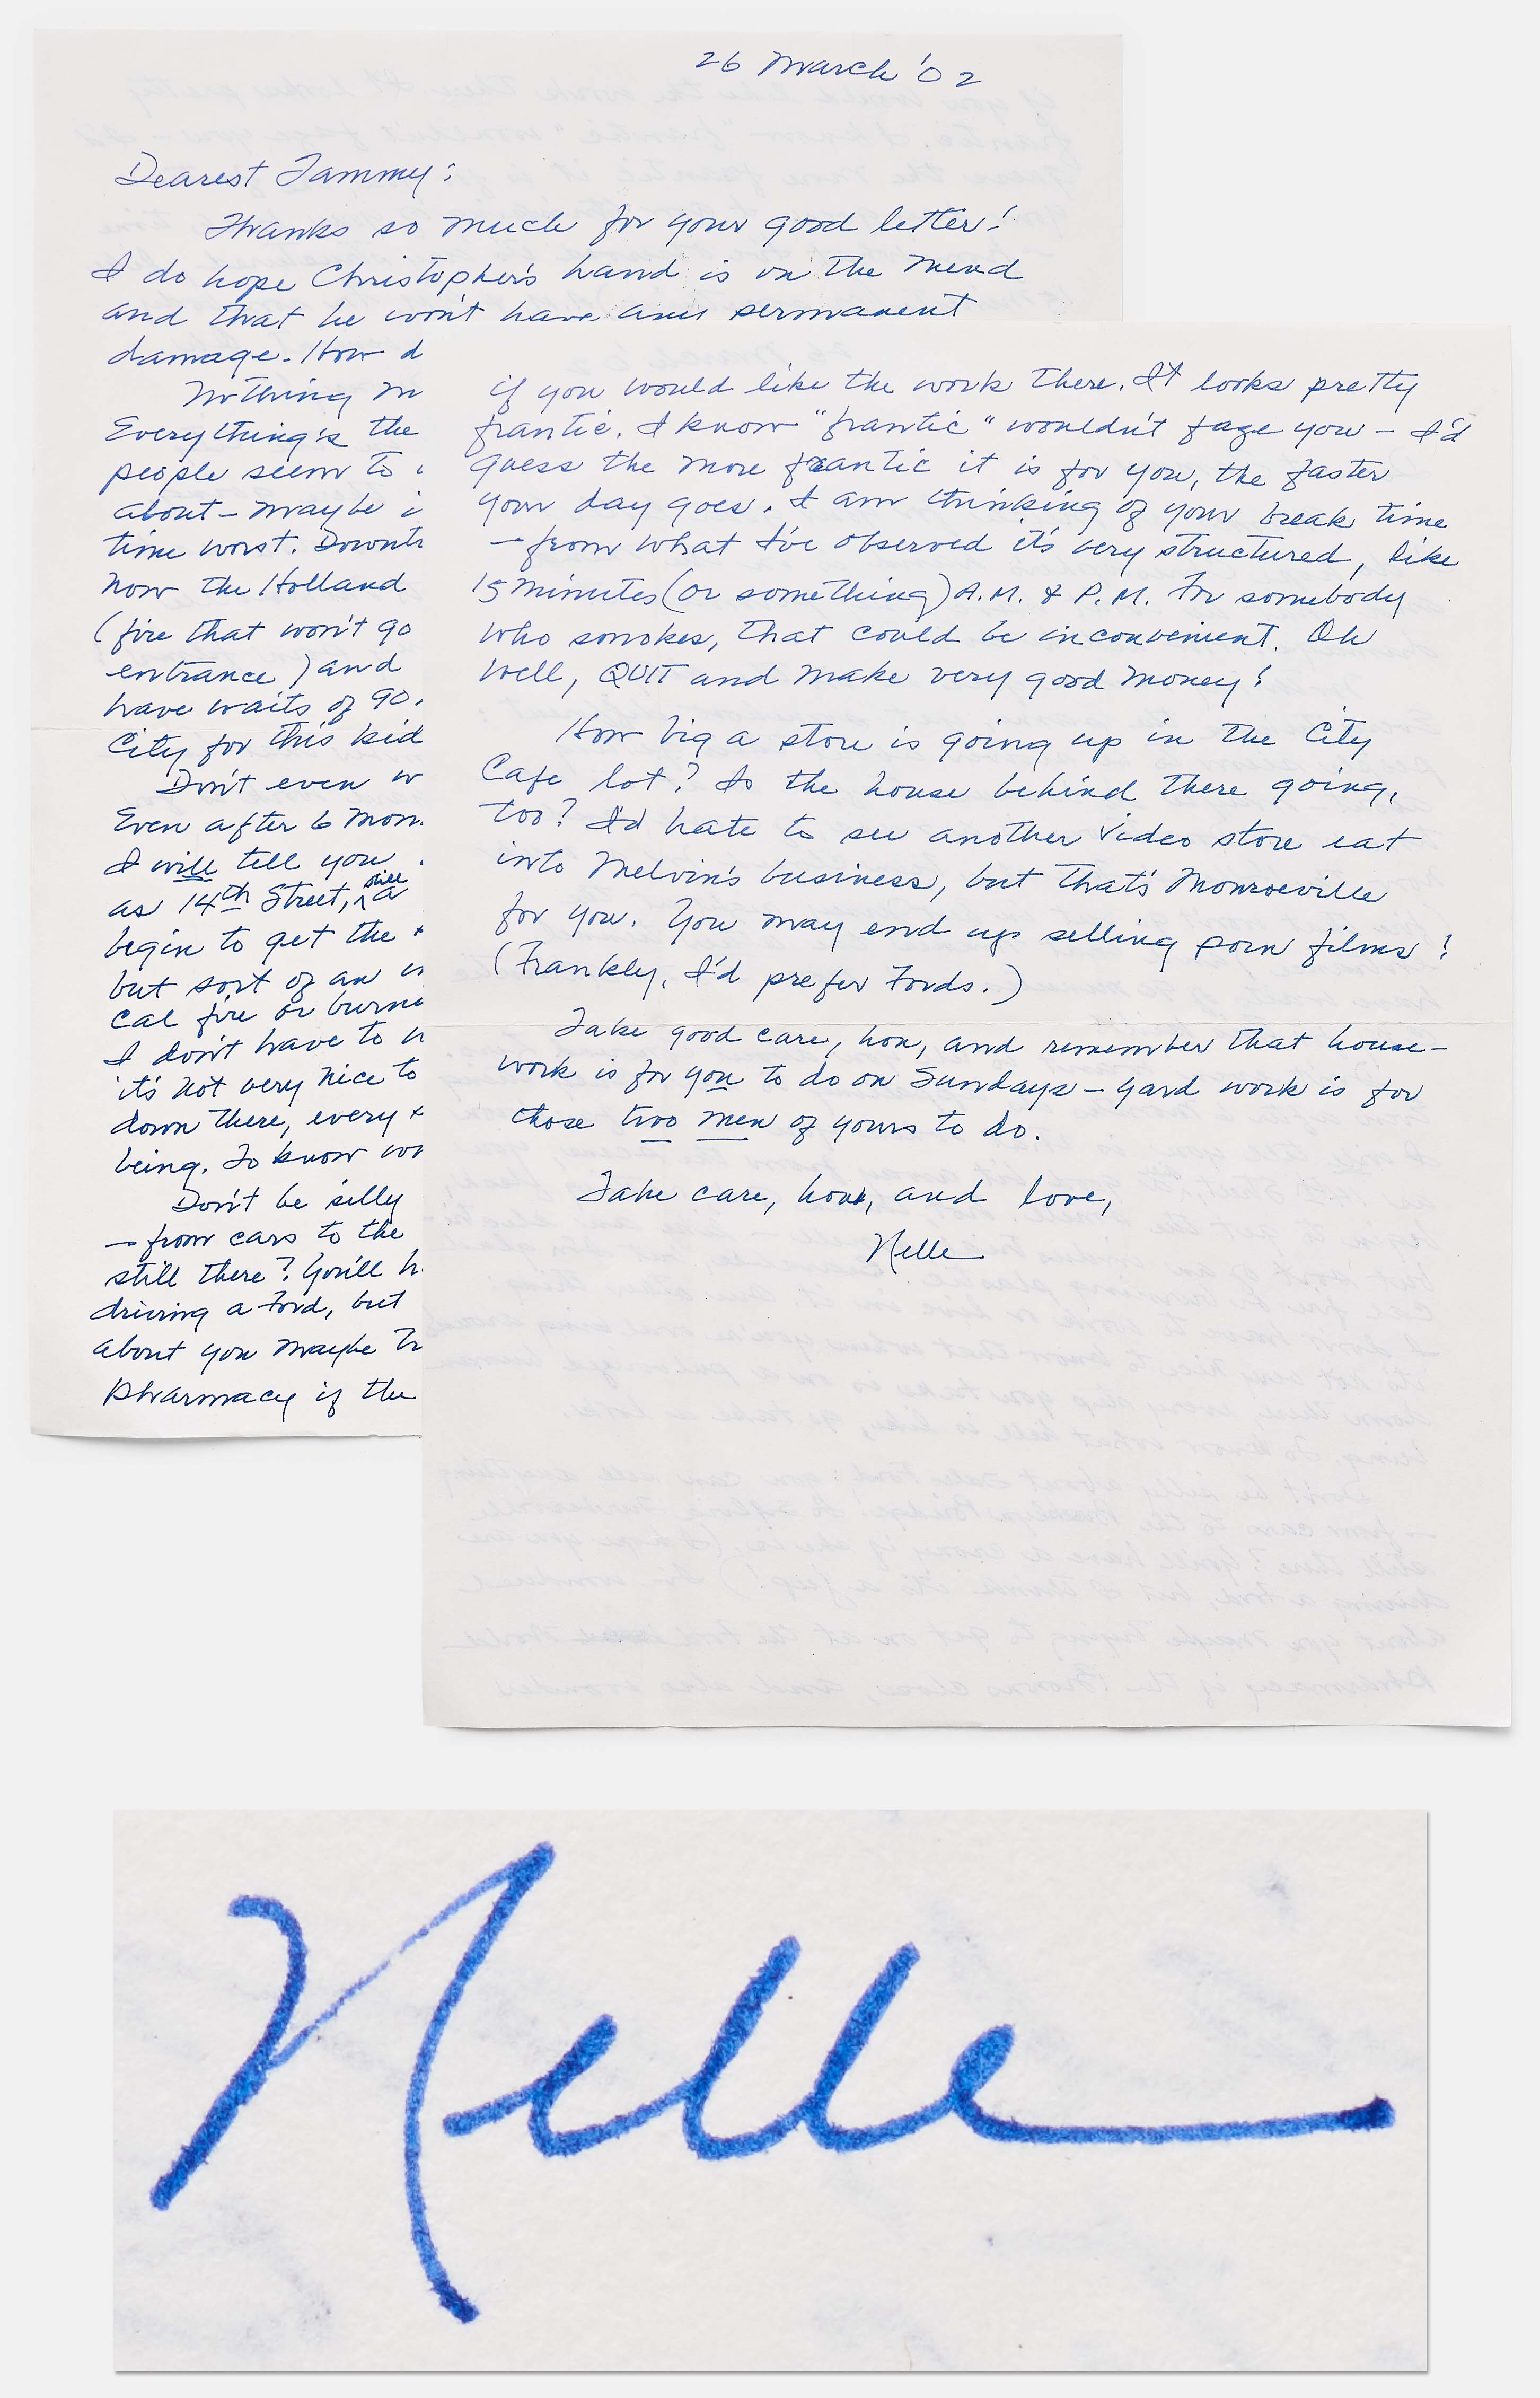 26 March '02
Dearest Tammy:
Thanks so much for your good letter!
I do hope Christopher's hand is on the mend
and that he won't have any permanent
damage. How d
Nothing m
Everything's the
people seem to
about – maybe i
time worst. Downt
now the Holland
(fire that won't go
entrance) and
have waits of 90
City for this kid
Don't even w
Even after 6 mon
I will tell you
as 14th Street, still a
begin to get the
but sort of an
cal fire or burn
I don't have to
it's not very nice to
down there, every
being. To know wh
Don't be silly
– from cars to the
still there? You'll h
driving a Ford, but
about you maybe tr
Pharmacy if the
if you would like the work there. It looks pretty
frantic. I know "frantic" wouldn't faze you – I'd
guess the more frantic it is for you, the faster
your day goes. I am thinking of your break time
– from what I've observed it's very structured, like
15 minutes (or something) A.M. & P.M. For somebody
who smokes, that could be inconvenient. Oh
well, QUIT and make very good money!
How big a store is going up in the City
Cafe lot? Is the house behind there going,
too? I'd hate to see another video store eat
into Melvin's business, but that's Monroeville
for you. You may end up selling porn films!
(Frankly, I'd prefer Fords.)
Take good care, hon, and remember that house-
work is for you to do on Sundays – yard work is for
those two men of yours to do.
Take care, hon, and love,
Nelle
Nelle